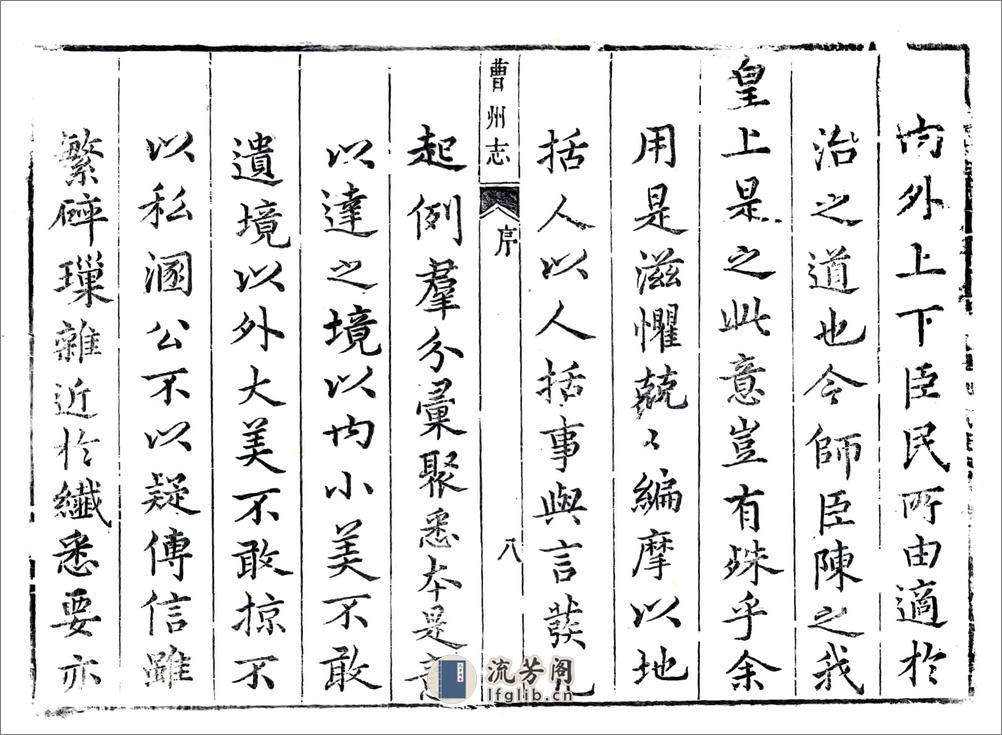 内外上下臣民所由適於
治之道也今師臣陳之我
皇上是之此意豈有殊乎余
用是滋懼兢〻編摩以地
括人以人括事與言發凡
曹州志
序
八
起例羣分彙聚悉本是意
以達之境以内小美不敢
遺境以外大美不敢掠不
以私溷公不以疑傳信雖
繁碎璅雜近於纖悉要亦
流芳阁
lfglib.cn